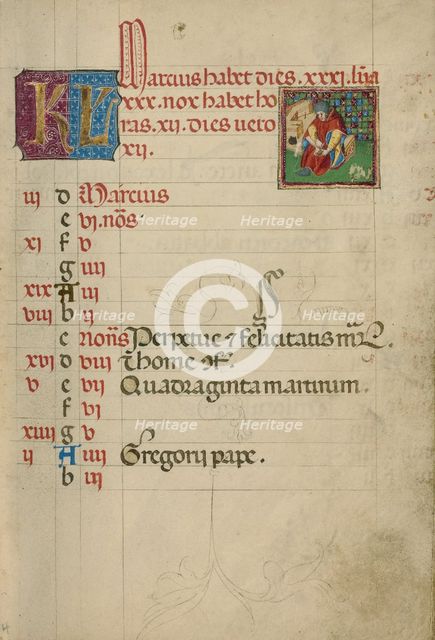 KL Marcius habet dies. xxxi. lūa
xxx. nox habet ho
ras. xii. dies uero
xii.
iii d Marcius
e vi. nōs.
xi f v
g iiii
xix A iii
viii b ii
c nonīs Perpetue & felicitatis mr̄.
xvi d viii Thome 9f.
v e vii Quadraginta martirium.
f vi
xiii g v
ii A iiii Gregorii pape.
b iii
Heritage
Heritage
Heritage
Heritage
Heritage
Heritage